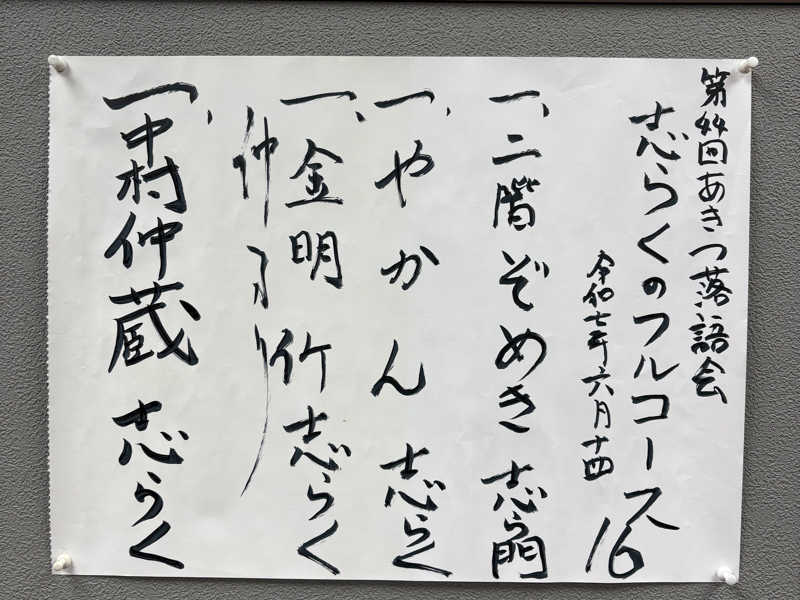 第44回あきつ落語会
志らくのフルコース16
令和七年六月十四
一、二階ぞめき 志ら門
一、やかん 志らく
一、金明竹 志らく
仲入り
一、中村仲蔵 志らく